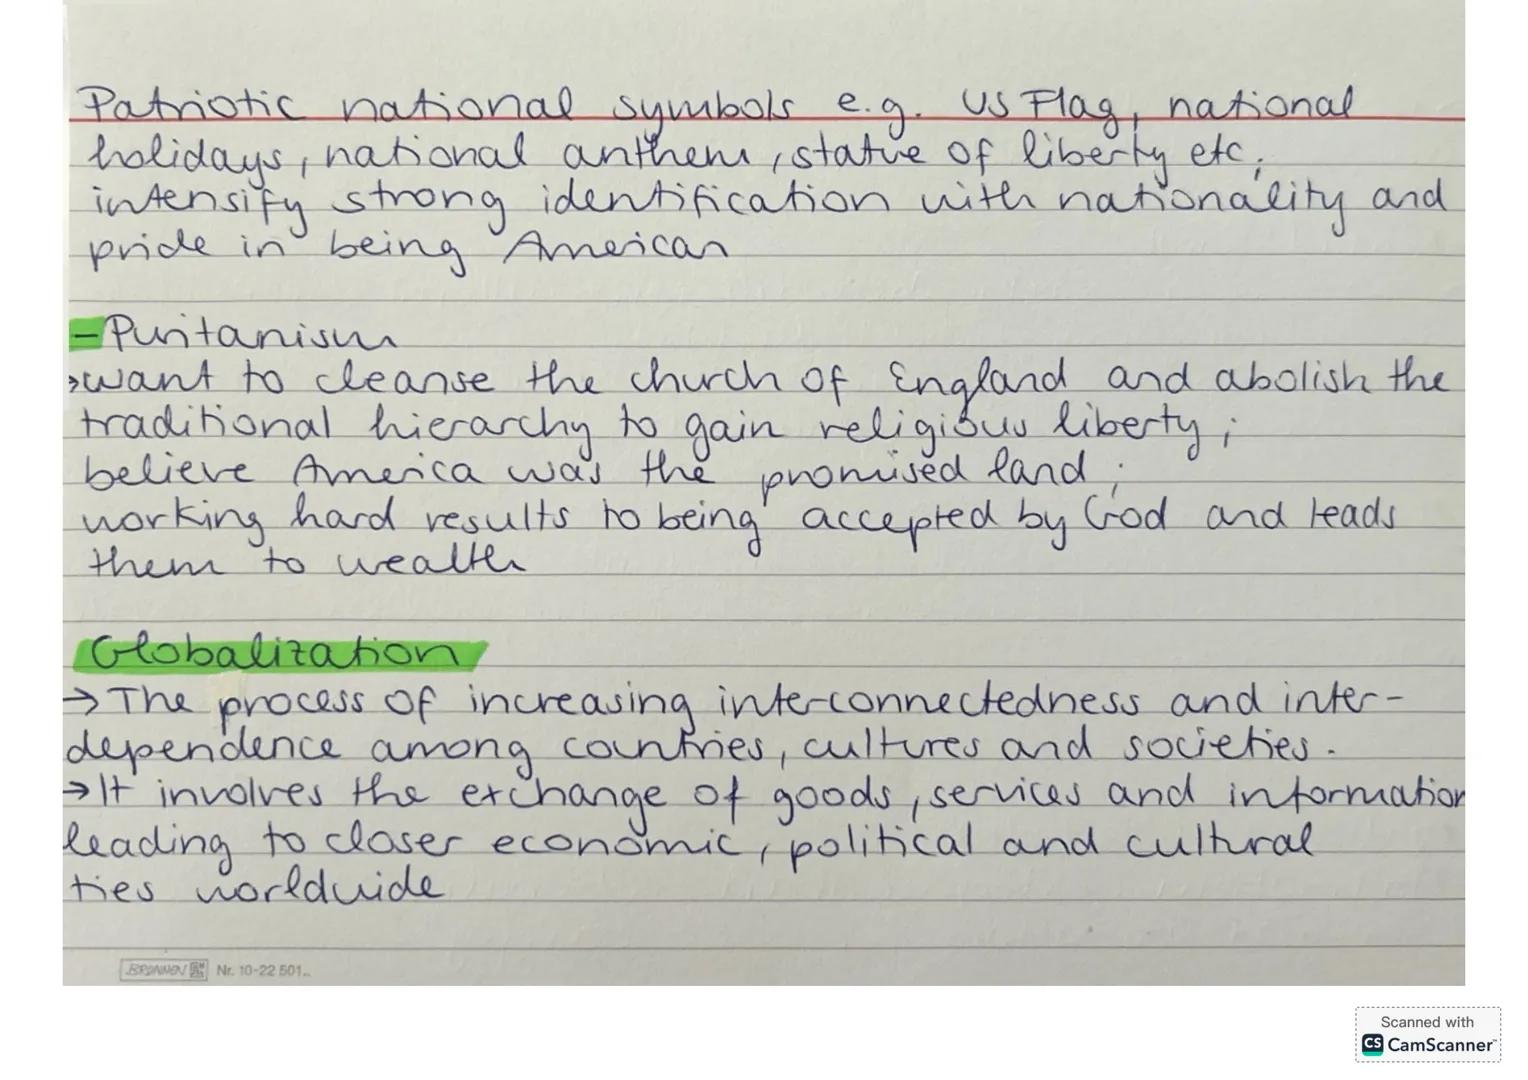 Patriotic national symbols e.g. US Flag, national
holidays, national anthem, statue of liberty etc.
intensify strong identification with nationality and
pride in being American
-Puritanism
→want to cleanse the church of England and abolish the
traditional hierarchy to gain religious liberty;
believe America was the promised land;
working hard results to being accepted by God and leads
them to wealth
Globalization
→The process of increasing inter-connectedness and inter-
dependence among countries, cultures and societies.
→It involves the exchange of goods, services and information
leading to closer economic, political and cultural
ties worldwide
BRUNNEN Nr. 10-22 501..
Scanned with
CS CamScanner